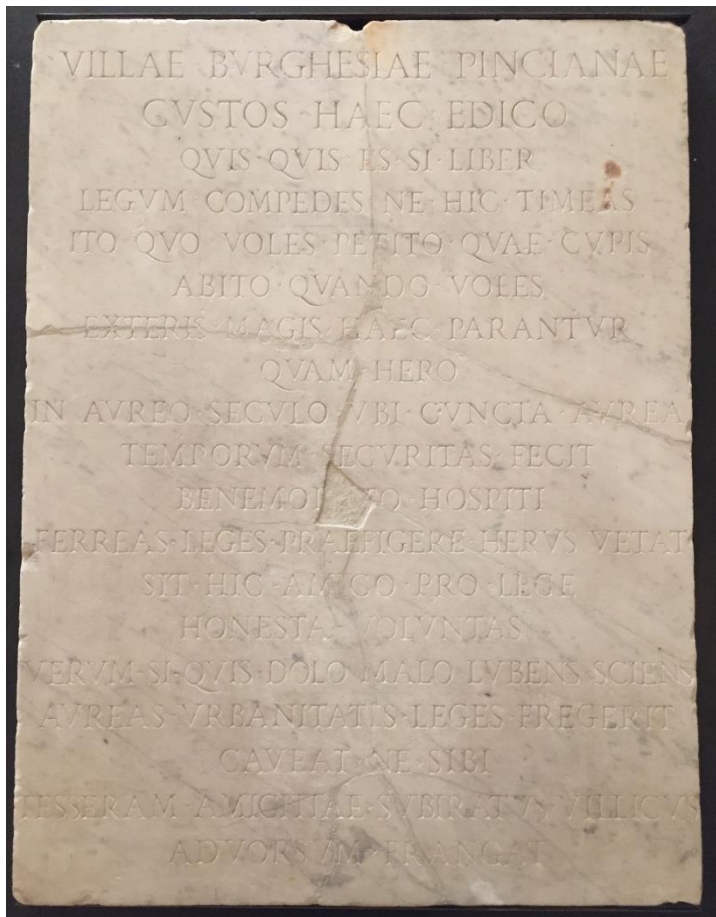 VILLAE BVRGHESIAE PINCIANAE
CVSTOS · HAEC EDICO
QVIS · QVIS ES · SI · LIBER
LEGVM COMPEDES NE · HIC · TIMEAS
ITO · QVO VOLES · PETITO · QVAE · CVPIS
ABITO · QVANDO · VOLES
EXTERIS · MAGIS HAEC · PARANTVR
QVAM · HERO
IN AVREO · SECVLO VBI · CVNCTA · AVREA
TEMPORVM SECVRITAS · FECIT
· HOSPITI
FERREAS · LEGES · PRAEFIGERE · HERVS VETAT
SIT · HIC · AMICO · PRO · LEGE
HONESTA VOLVNTAS
VERVM · SI · QVIS · DOLO MALO LVBENS · SCIENS
AVREAS · VRBANITATIS · LEGES · FREGERIT
CAVEAT · NE · SIBI
TESSERAM AMICITIAE · SVBIRATVS · VILLICVS
ADVORSVM · FRANGAT